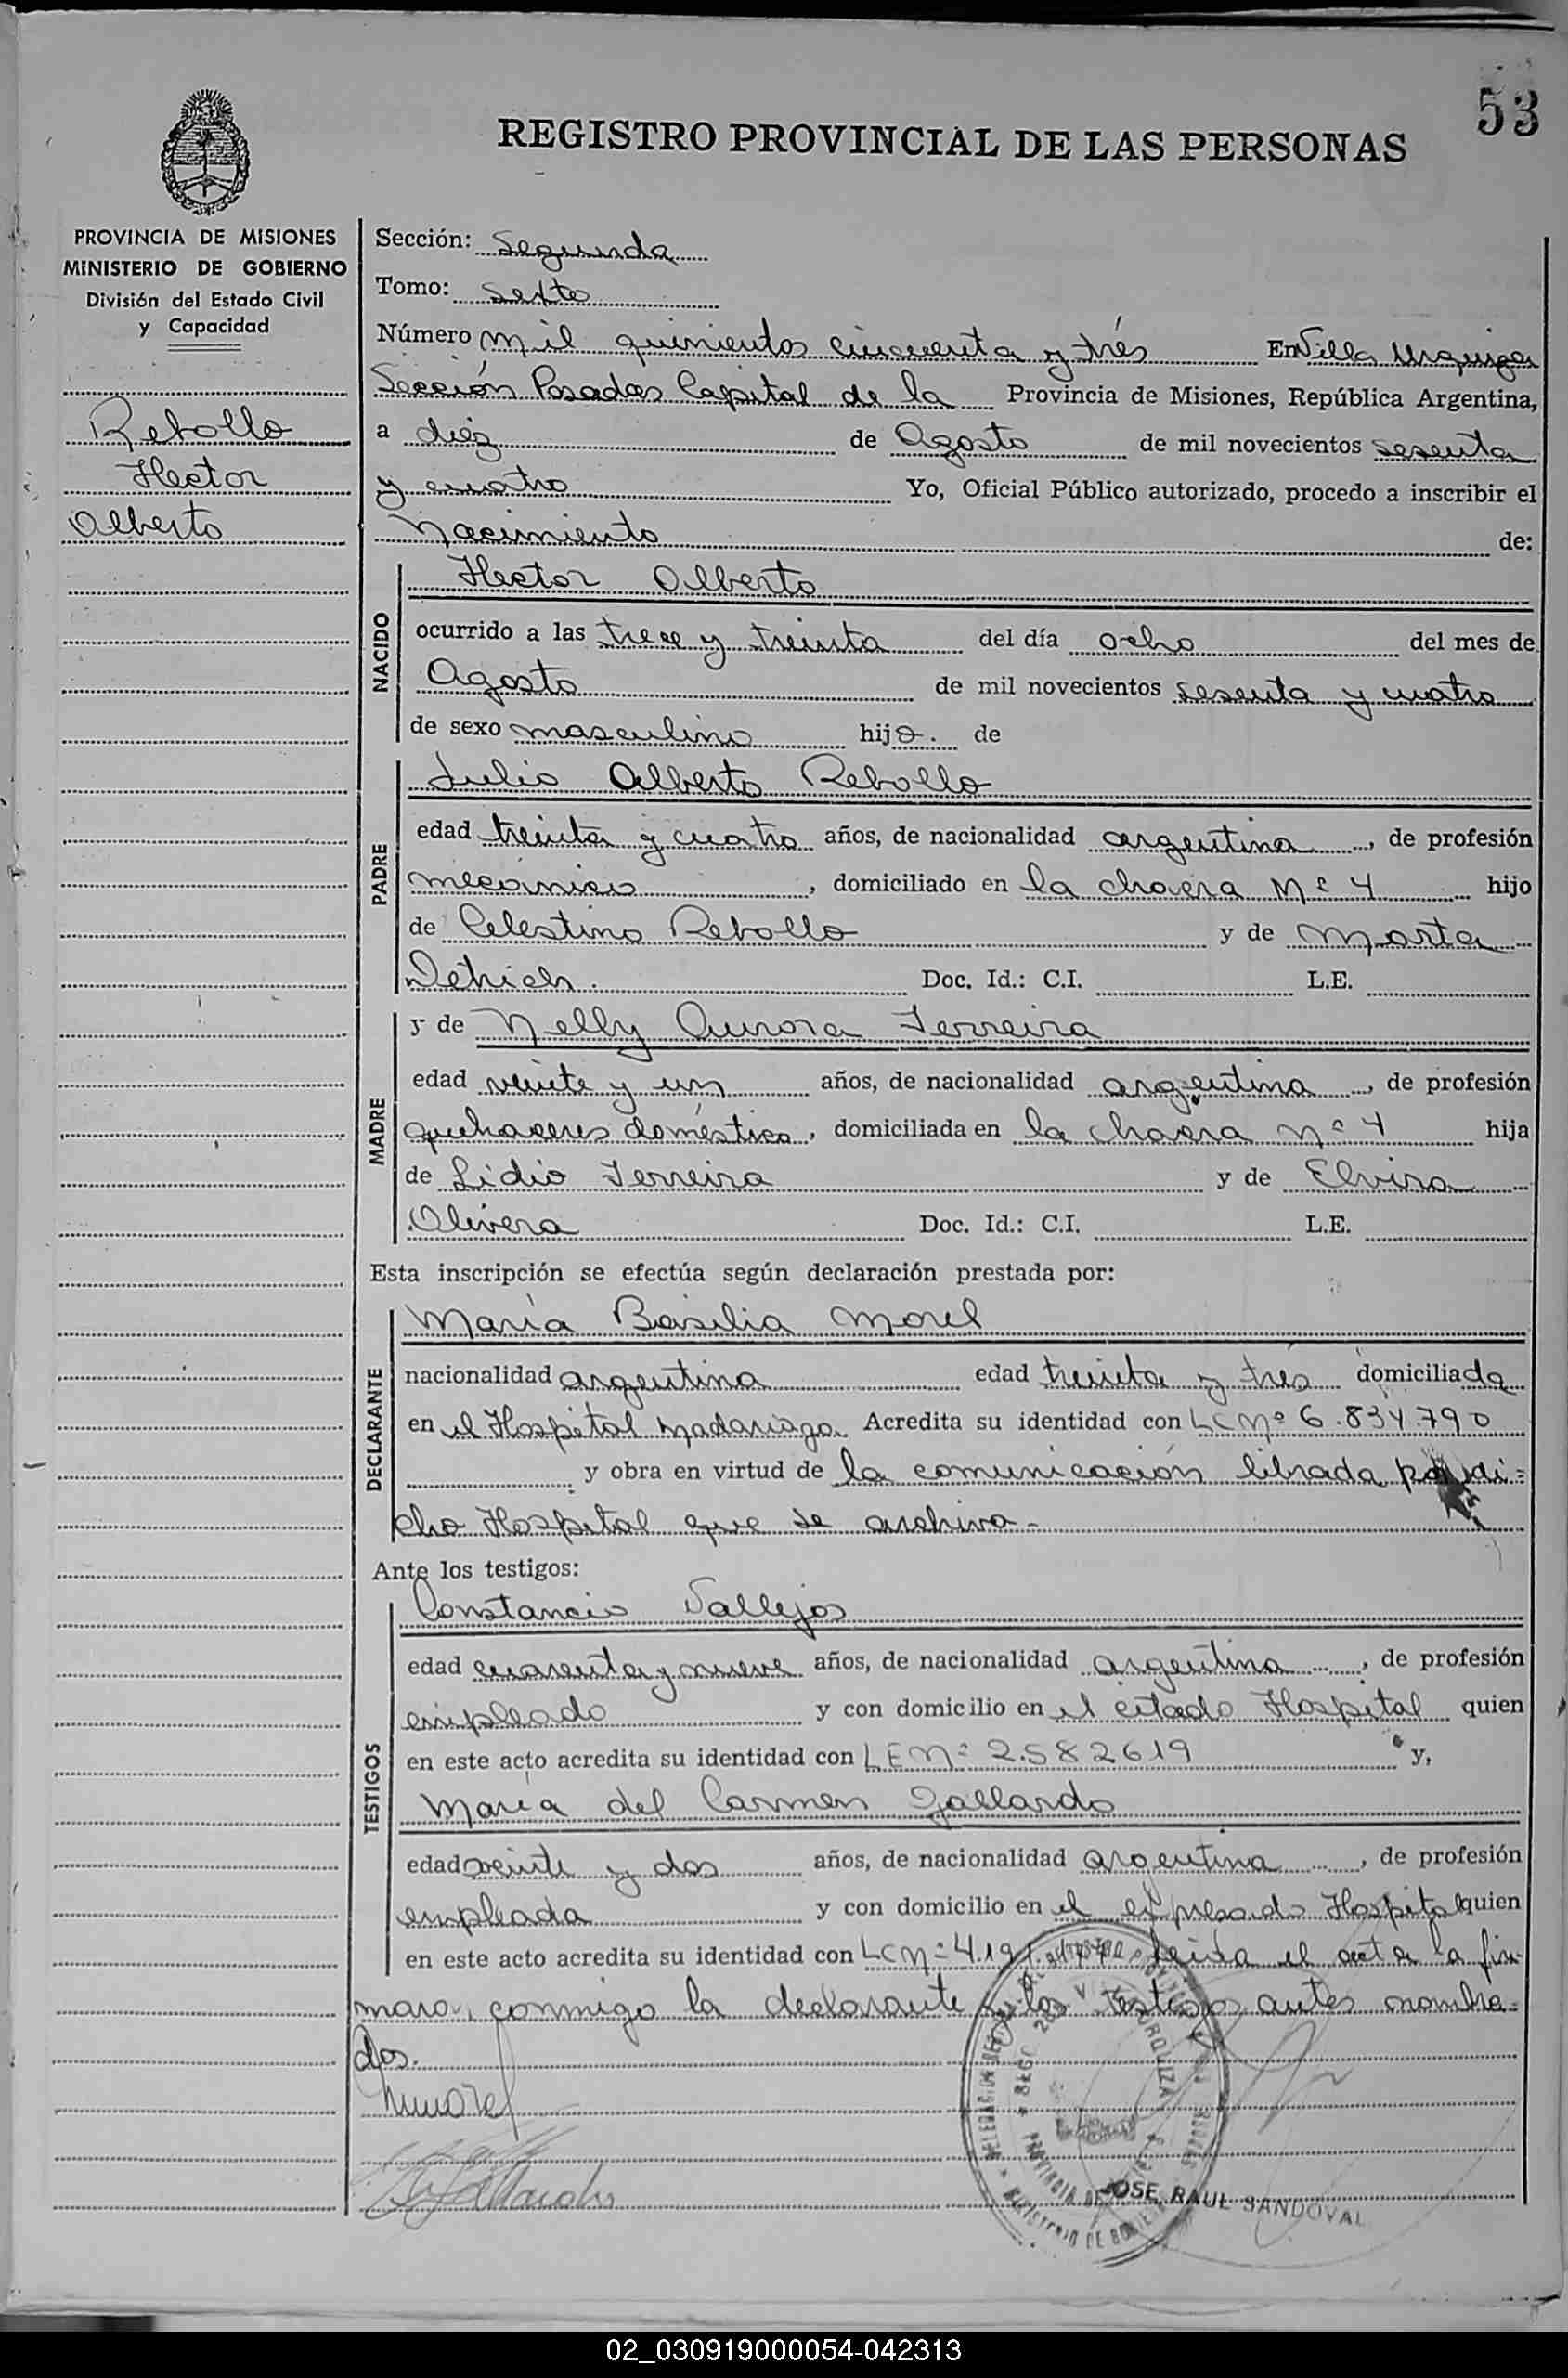 53
REGISTRO PROVINCIAL DE LAS PERSONAS
PROVINCIA DE MISIONES
MINISTERIO DE GOBIERNO
División del Estado Civil
y Capacidad
Rebollo
Hector
Alberto
Sección: Segunda
Tomo: Sexto
Número mil quinientos cincuenta y trés En Villa Urquiza
Sección Posadas Capital de la Provincia de Misiones, República Argentina,
a diéz de Agosto de mil novecientos sesenta
y cuatro Yo, Oficial Público autorizado, procedo a inscribir el
Nacimiento de:
NACIDO
Hector Alberto
ocurrido a las trece y treinta del día ocho del mes de
Agosto de mil novecientos sesenta y cuatro
de sexo masculino hijo. de
PADRE
Julio Alberto Rebollo
edad treinta y cuatro años, de nacionalidad argentina, de profesión
mecánico, domiciliado en la chacra Nº 4 hijo
de Celestino Rebollo y de Marta
Doc. Id.: C.I. L.E.
MADRE
y de Nelly Aurora Ferreira
edad veinte y un años, de nacionalidad argentina, de profesión
quehaceres doméstico, domiciliada en la chacra nº 4 hija
de Lidio Ferreira y de Elvira
Olivera Doc. Id.: C.I. L.E.
Esta inscripción se efectúa según declaración prestada por:
DECLARANTE
María Basilia Morel
nacionalidad argentina edad treinta y trés domiciliada
en el Hospital Madariaga Acredita su identidad con LC Nº 6.834.790
y obra en virtud de la comunicación librada por di=
cho Hospital que se archiva.-
Ante los testigos:
TESTIGOS
Constancio Vallejos
edad cuarenta y nueve años, de nacionalidad argentina, de profesión
empleado y con domicilio en el citado Hospital quien
en este acto acredita su identidad con LE Nº 2.582619 y,
María del Carmen Gallardo
edad veinte y dos años, de nacionalidad argentina, de profesión
empleada y con domicilio en el expresado Hospital quien
en este acto acredita su identidad con LC Nº 4.191. Leída el acta la fir-
maron conmigo la declarante y los testigos antes nombra=
dos.
JOSE RAUL SANDOVAL
02_030919000054-042313